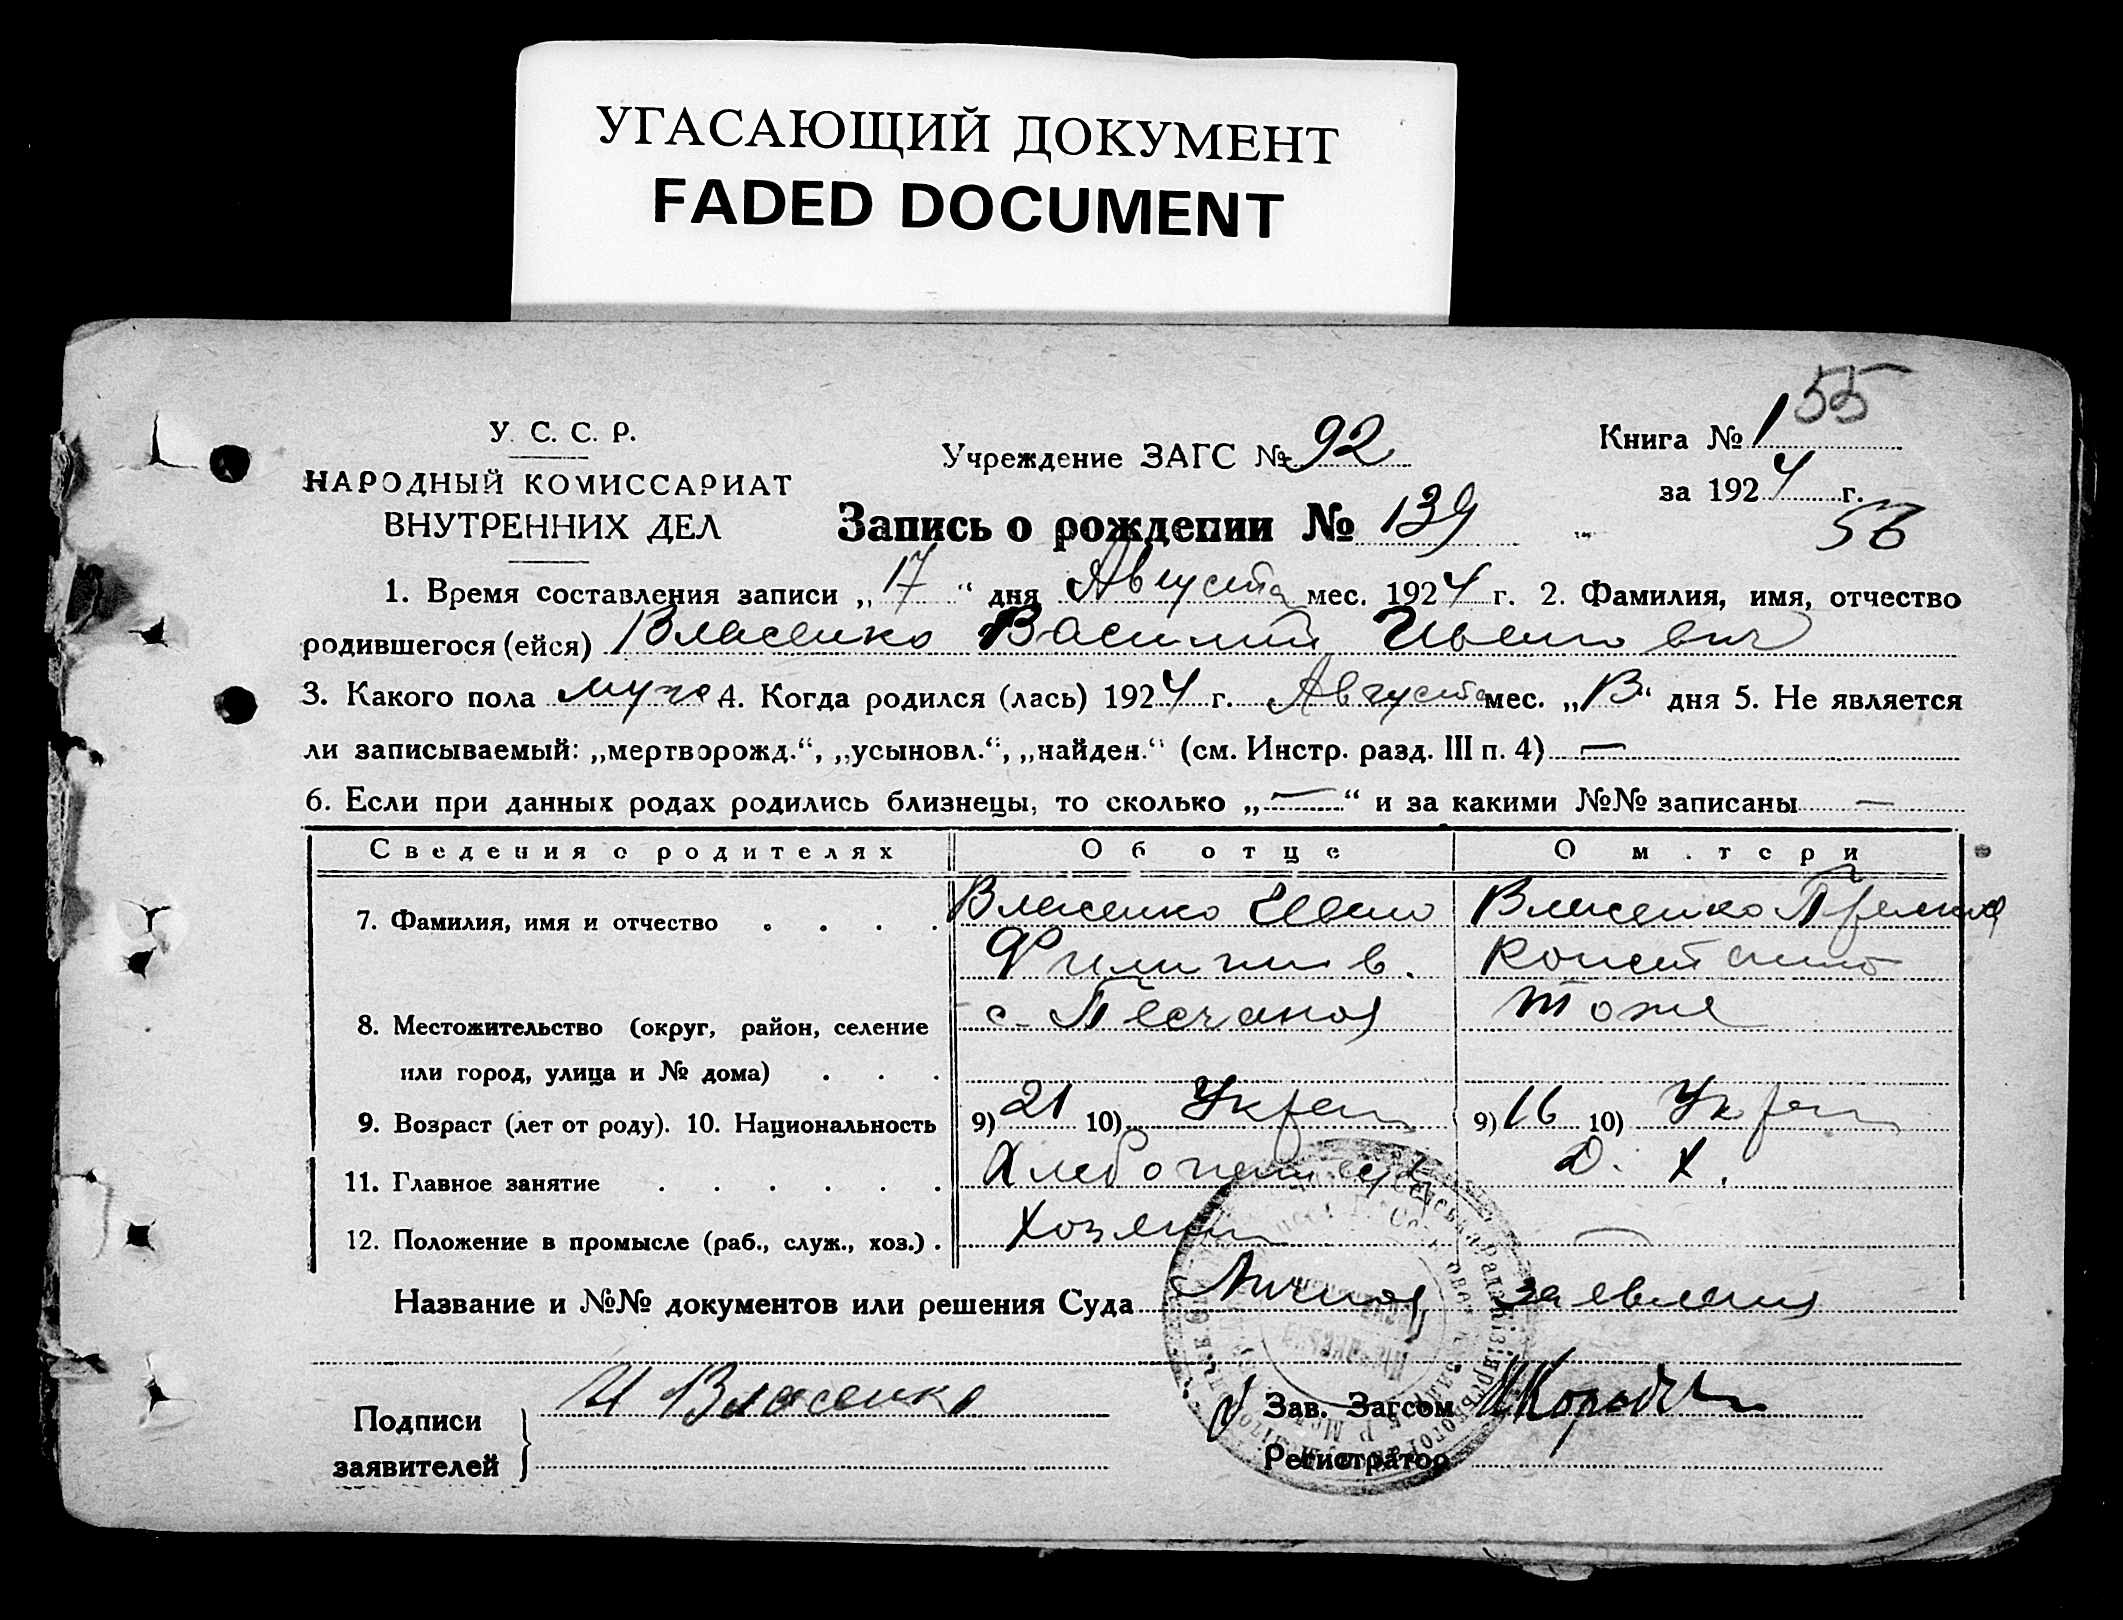 УГАСАЮЩИЙ ДОКУМЕНТ
FADED DOCUMENT
55
У. С. С. Р.
НАРОДНЫЙ КОМИССАРИАТ
ВНУТРЕННИХ ДЕЛ
Учреждение ЗАГС № 92
Книга № 1
за 1924 г.
Запись о рождении № 139
56
1. Время составления записи „17“ дня Августа мес. 1924 г. 2. Фамилия, имя, отчество
родившегося (ейся) Власенко Василий Иванович
3. Какого пола муже 4. Когда родился (лась) 1924 г. Августа мес. „13“ дня 5. Не является
ли записываемый: „мертворожд.“, „усыновл.“, „найден.“ (см. Инстр. разд. III п. 4) —
6. Если при данных родах родились близнецы, то сколько „—“ и за какими №№ записаны —
Сведения о родителях Об отце О м.тери
7. Фамилия, имя и отчество . . . . Власенко Иван Власенко
Филипов. Констант
8. Местожительство (округ, район, селение с. Песчаноя тоже
или город, улица и № дома) . . .
9. Возраст (лет от роду). 10. Национальность 9) 21 10) Украин 9) 16 10) Украин
11. Главное занятие . . . . . . Хлебопашец Д. Х.
12. Положение в промысле (раб., служ., хоз.) . хозяин —
Название и №№ документов или решения Суда Личноя заявления
Подписи
заявителей
И Власенко
Зав. Загсом
Регистратор